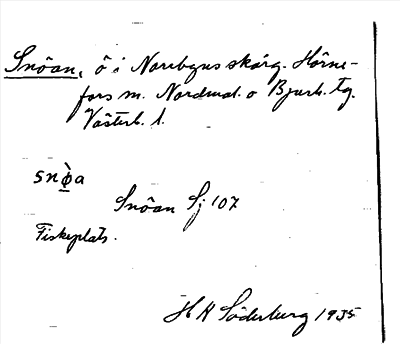 Snöan, ö i Norrbyns skärg. Hörne-
fors m. Nordmal. o Bjurh. tg.
Västerb. l.
snø̀a
Snöan Sj 107
Fiskeplats.
H K Söderberg 1935